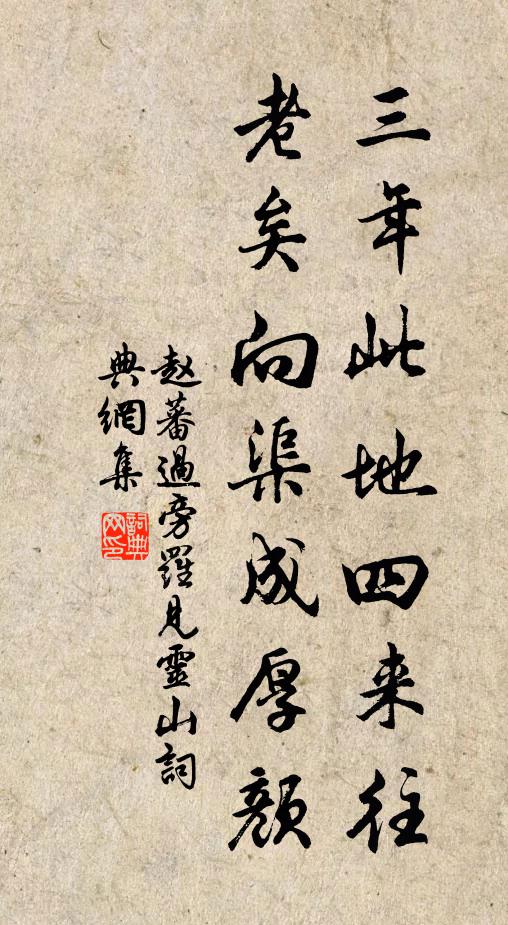 三年此地四来往
老矣向渠成厚颜
赵蕃過旁羅見靈山詞
典網集
詞典网印